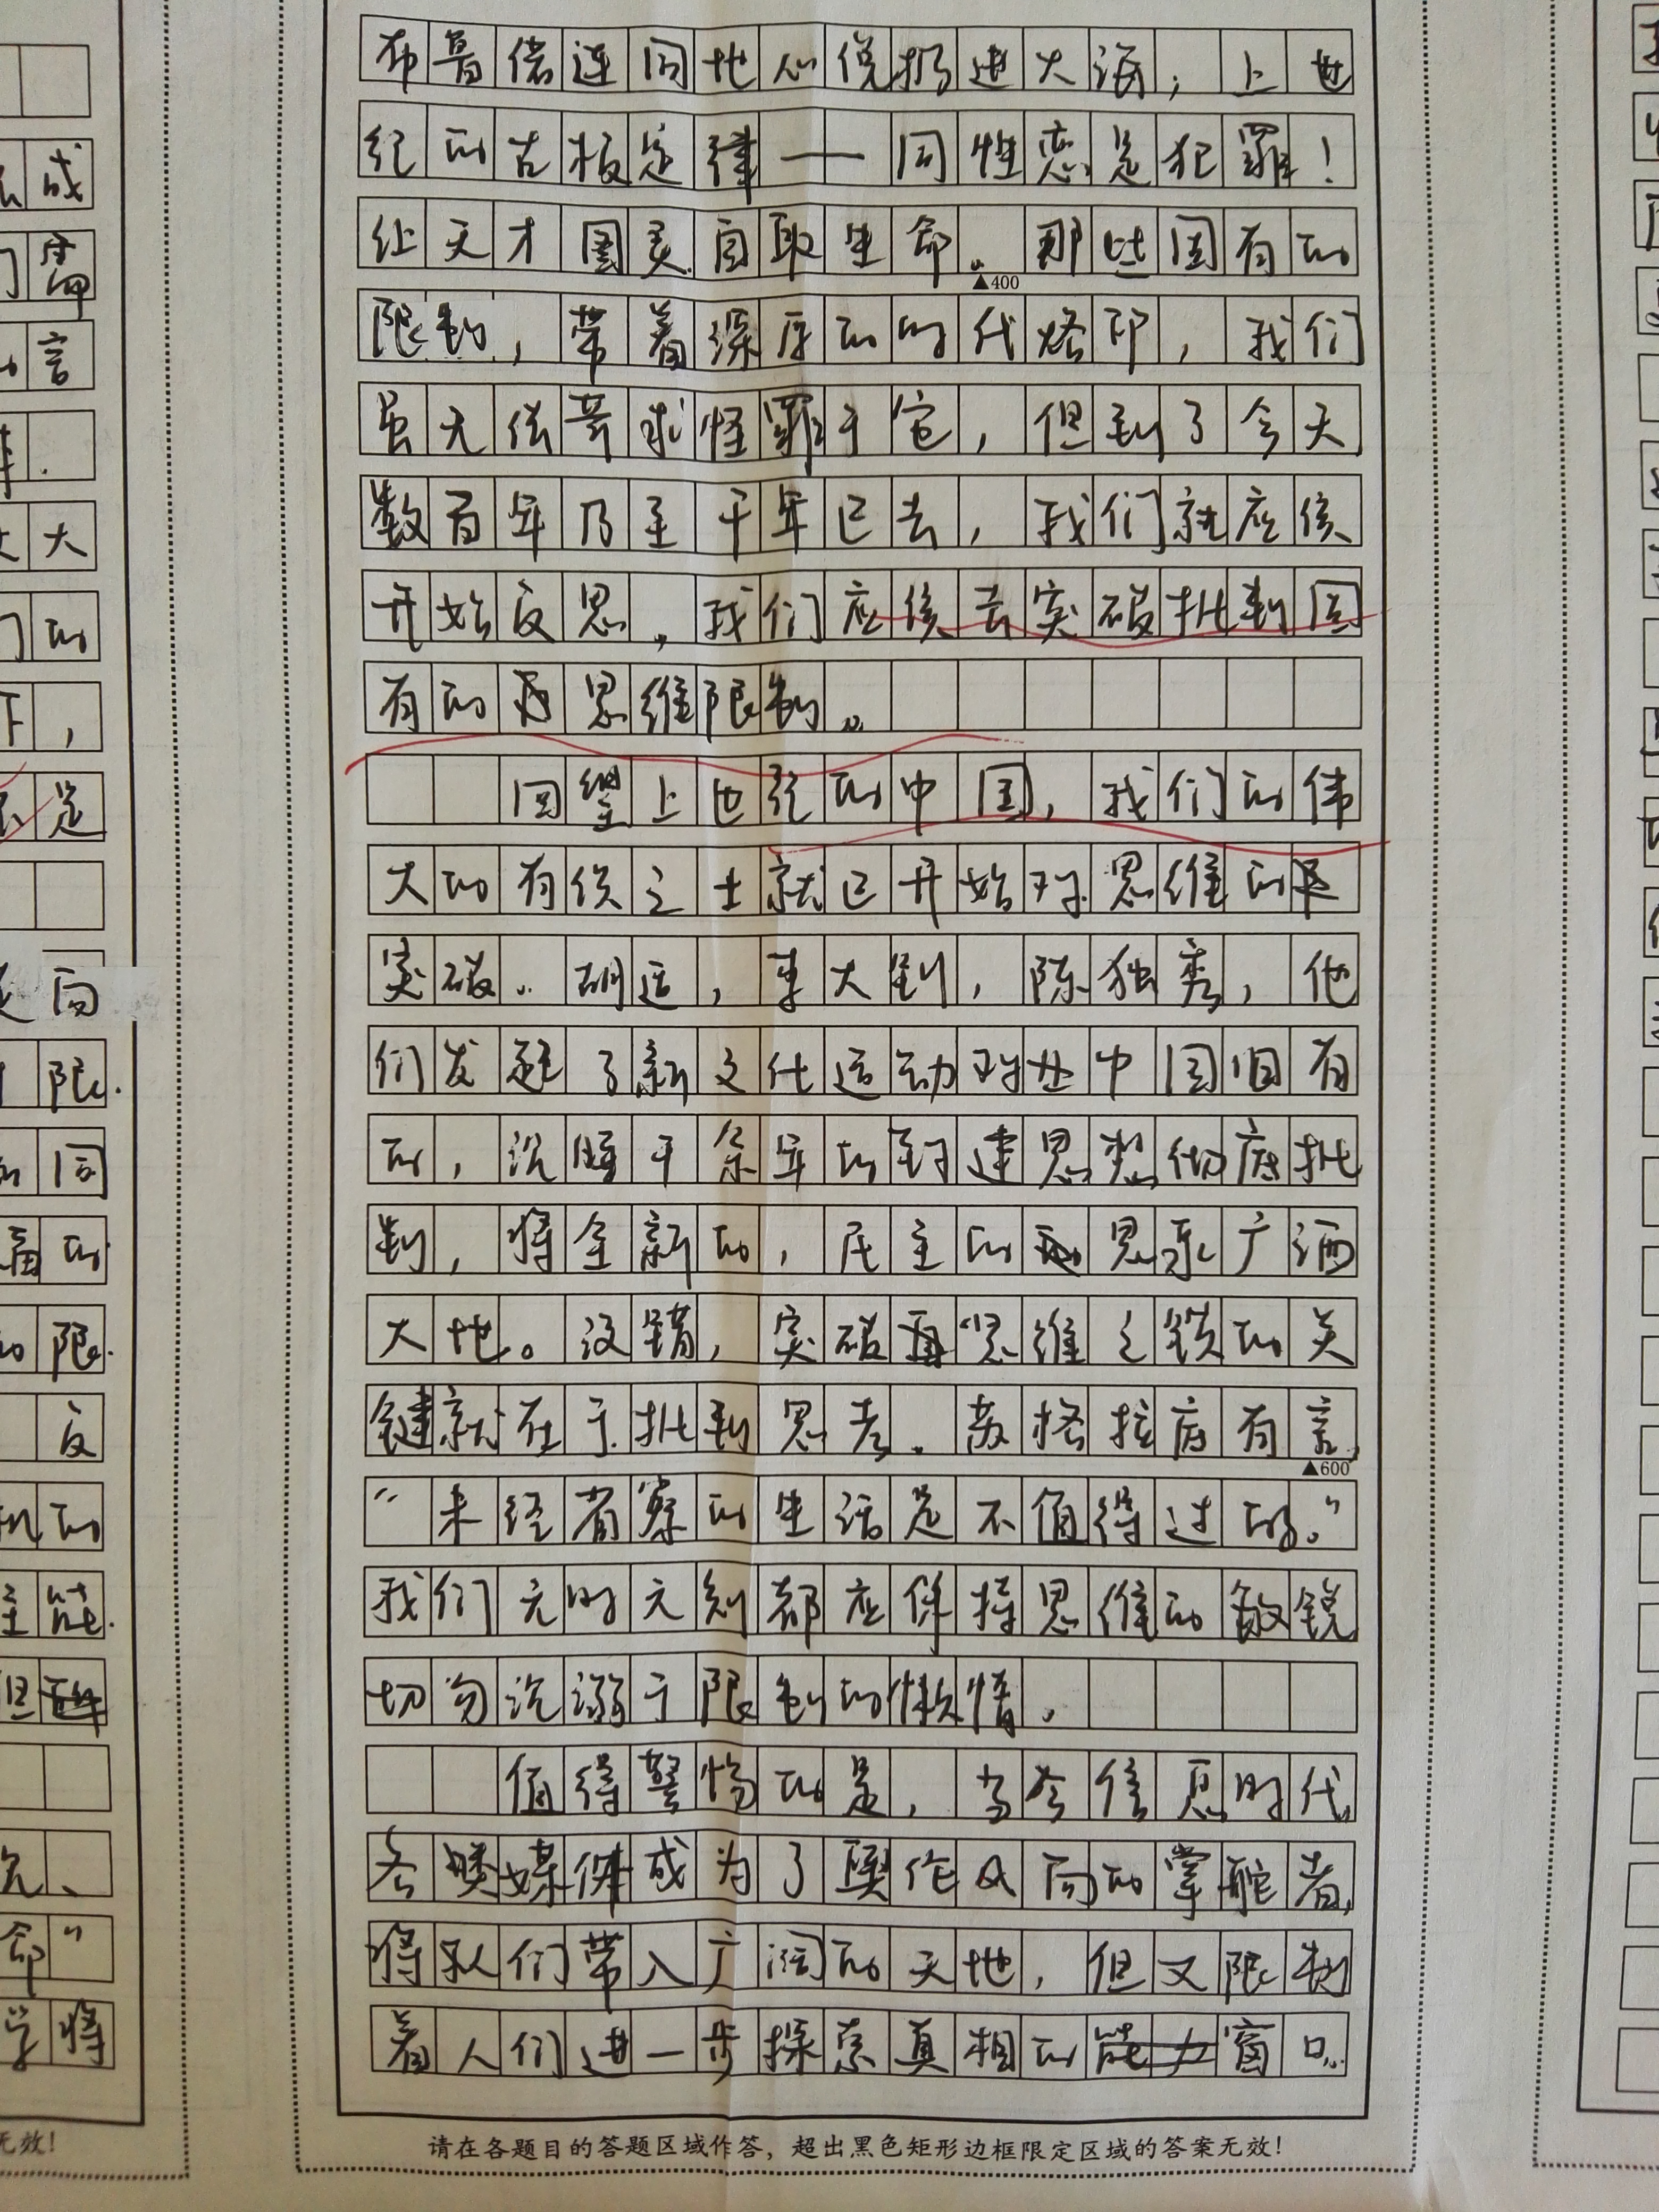 布鲁诺连同地心说扔进大海，上世
纪的古板定律——同性恋是犯罪！
让天才图灵自取生命。那些固有的
▲400
限制，带着深厚的时代烙印，我们
虽无法苛求怪罪于它，但到了今天
数百年乃至千年已去，我们就应该
开始反思。我们应该去突破批判固
有的思维限制。
回望上世纪的中国，我们的伟
大的有识之士就已开始对思维的
突破。胡适，李大钊，陈独秀，他
们发起了新文化运动对处中国旧有
的，沉睡千余年的封建思想彻底批
判，将全新的，民主的思索广洒
大地。没错，突破思维之锁的关
键就在于批判思考。苏格拉底有言，
▲600
“未经省察的生活是不值得过的。”
我们无时无刻都应保持思维的敏锐
切勿沉溺于限制的懒惰。
值得警惕的是，当今信息时代，
各类媒体成为了舆作风向的掌舵者，
将我们带入广阔的天地，但又限制
着人们进一步探索真相的窗口。
请在各题目的答题区域作答，超出黑色矩形边框限定区域的答案无效！
成
言
大
们的
下，
是
向
限
同
的
限
反
的
能
但
命”
学将
无效！